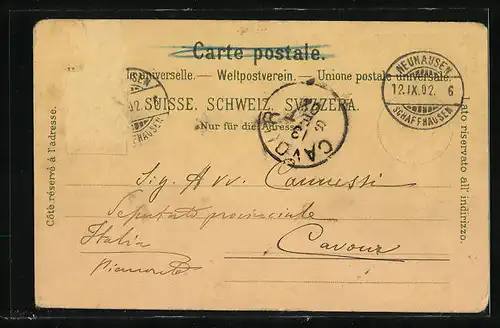 Carte postale.
universelle. — Weltpostverein. — Unione postale universale.
SUISSE. SCHWEIZ. SVIZZERA.
Nur für die Adresse
Côté réservé à l'adresse.
lato riservato all' indirizzo.
NEUHAUSEN
12.IX.02. 6
SCHAFFHAUSEN
02.
HAUSEN
CAVOUR
Sig. Avv. Cannessi
Deputato provinciale
Italia Cavour
Piemonte